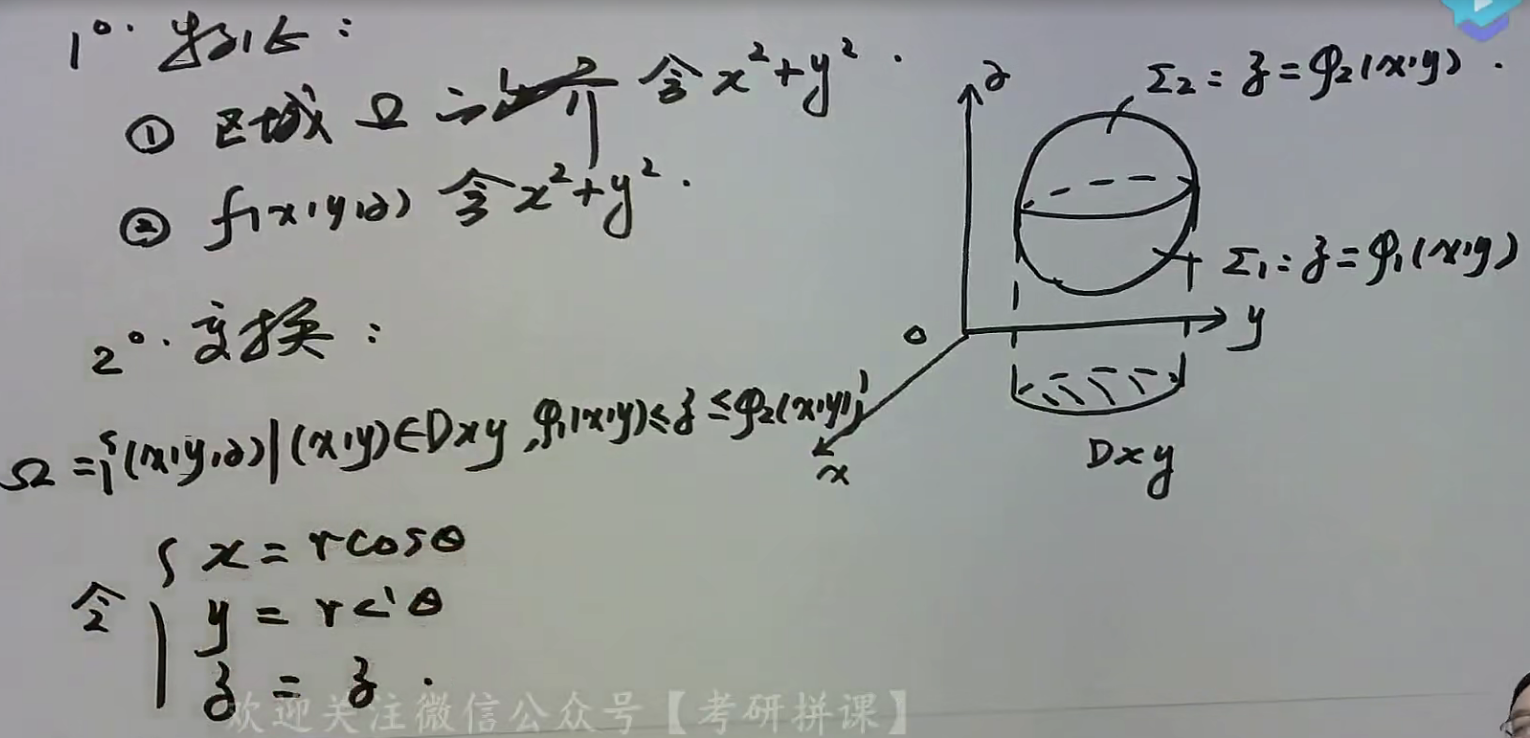 1°. 特征:
① 区域 Ω 之 含 x²+y².
② f(x,y,z) 含 x²+y².
2°. 变换:
Ω={(x,y,z)|(x,y)∈Dxy, φ₁(x,y)≤z≤φ₂(x,y)}
令 { x = rcosθ
y = r θ
z = z.
z
Σ₂: z=φ₂(x,y).
Σ₁: z=φ₁(x,y)
0
y
x
Dxy
欢迎关注微信公众号【考研拼课】